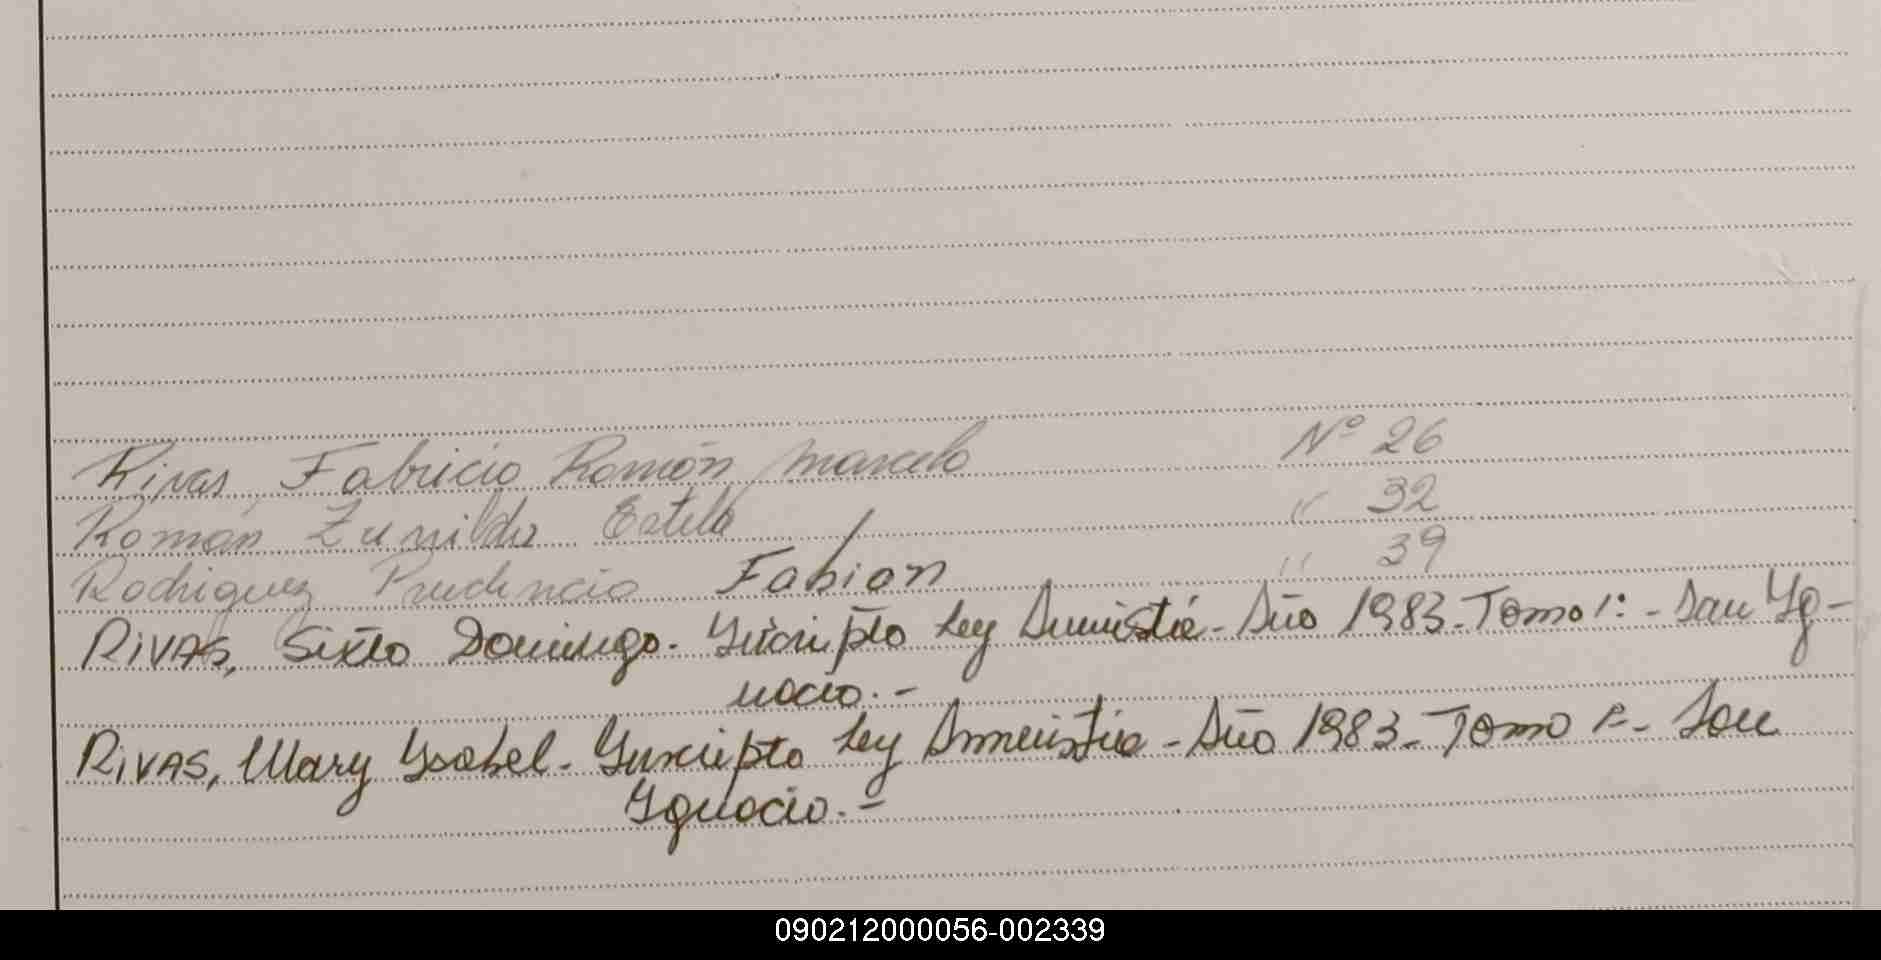 Rivas, Fabricio Ramón Marcelo Nº 26
Román Zunilda Estela " 32
Rodriguez Prudencio Fabian " 39
RIVAS, Sixto Domingo. Ynscripto Ley Amnistia - Año 1983 - Tomo 1: - San Yg-
nacio. -
RIVAS, Mary Ysabel - Ynscripto Ley Amnistia - Año 1983 - Tomo 1º - San
Ygnacio. -
090212000056-002339